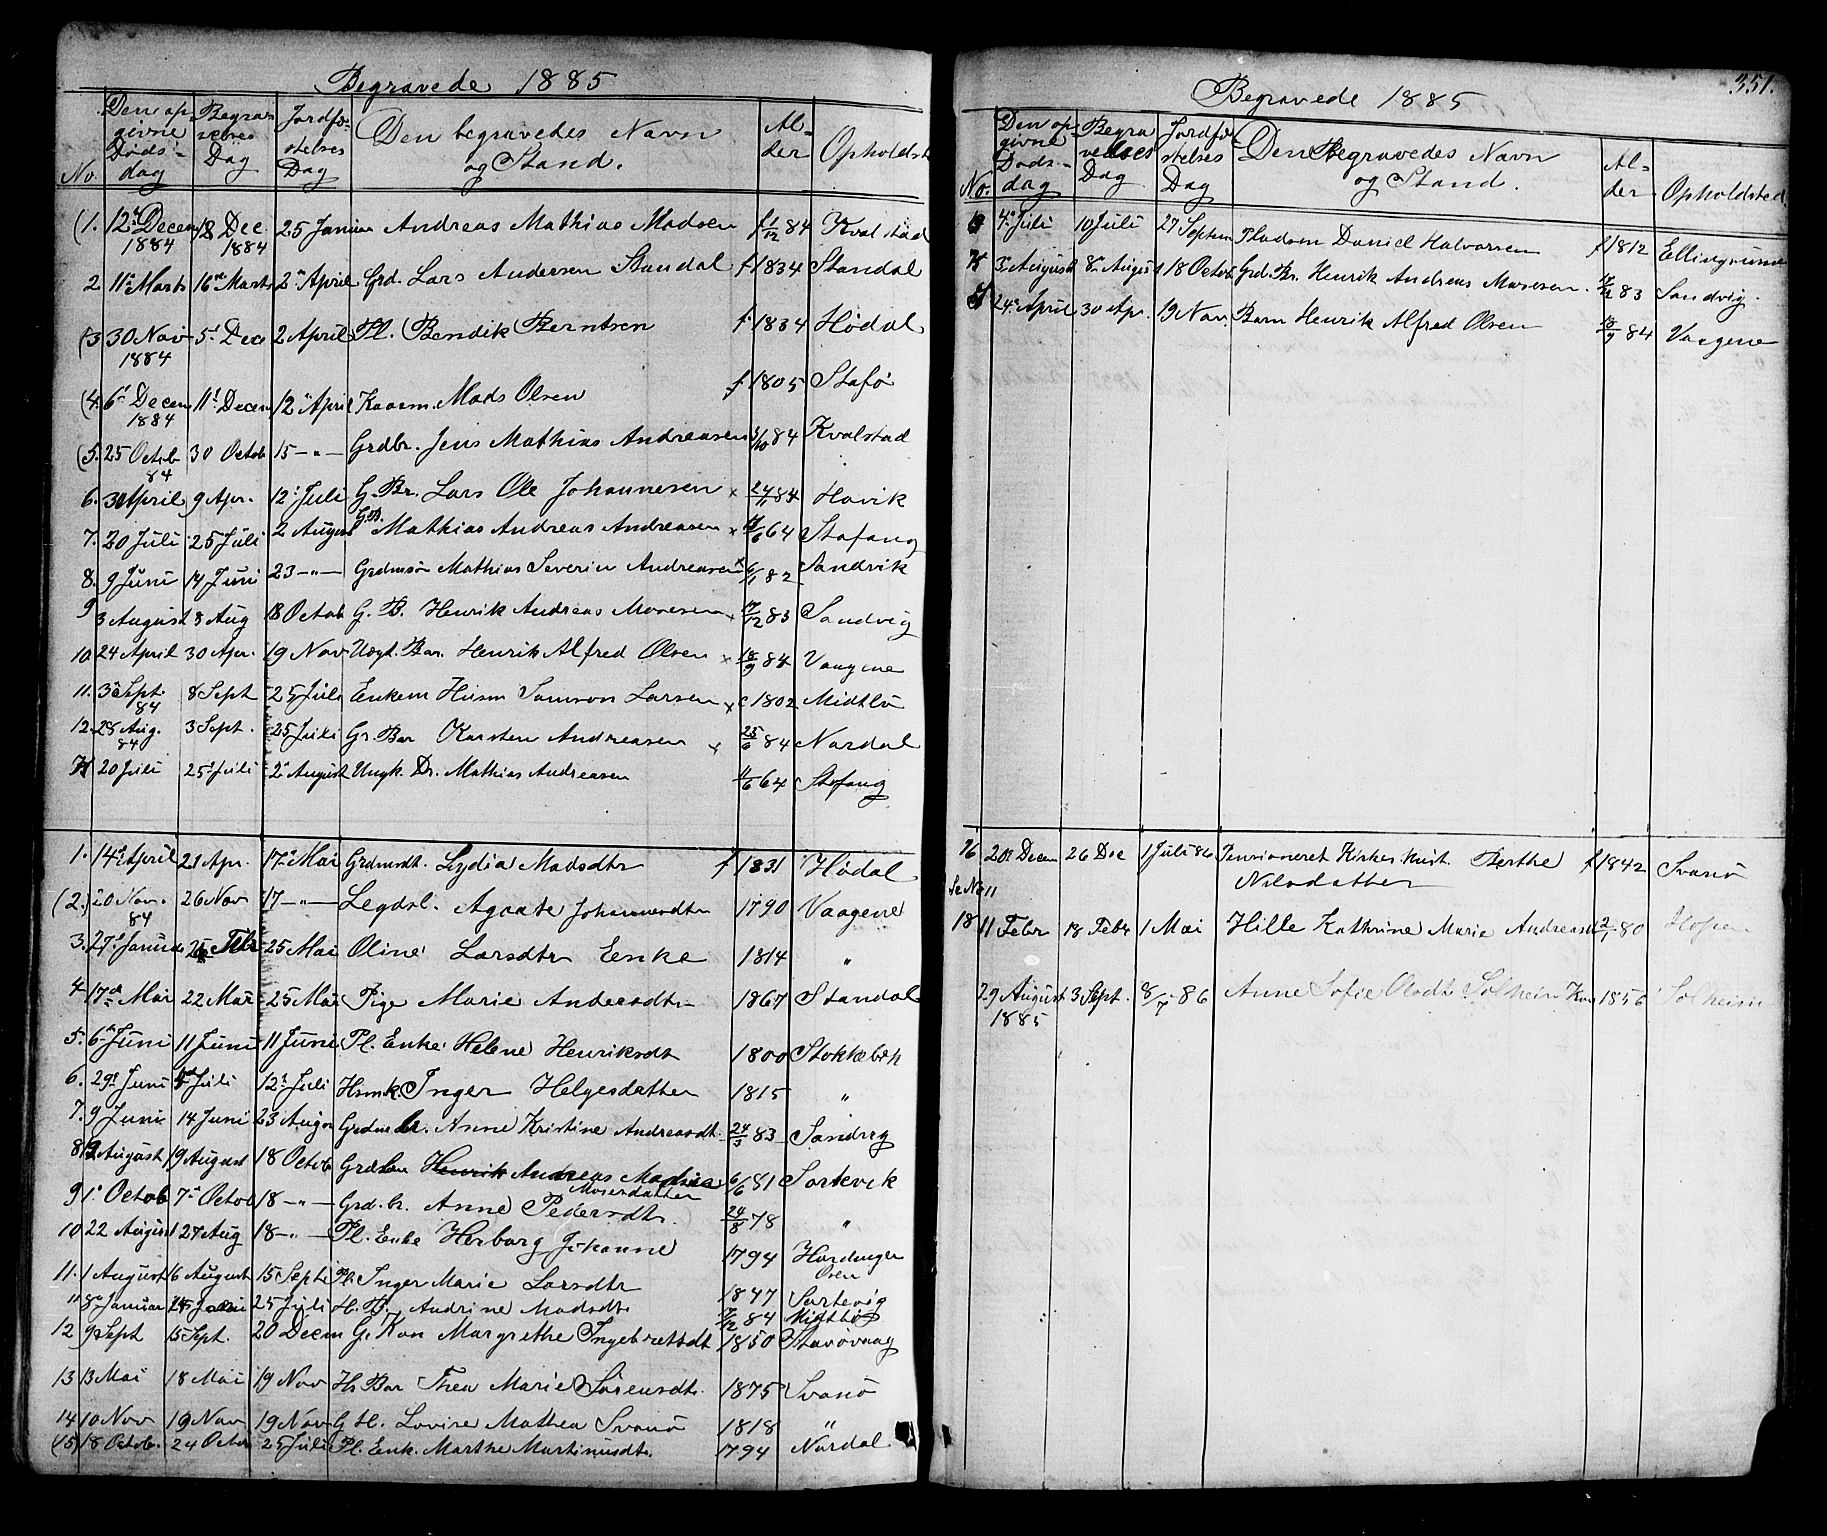 Begravede 1885
No. | Den opgivne Dødsdag | Begravelses Dag | Jordfæstelses Dag | Den begravedes Navn og Stand. | Alder | Opholdst
(1. 12te Decem 1884 18 Dec. 1884 25 Januar Andreas Mathias Madsen f 1/12 84 Kvalstad
2. 11te Marts 16de Marts 2den April Grd. Lars Andersen Standal f 1834 Standal
(3 30 Nov 1884 5te Dec 2 April Pl. Bendik Berntsen f. 1834 Hødal
(4. 6te Decem 1884 11te Decem 12te April Kaarm. Mads Olsen f 1805 Stafø
(5. 25 Octob 84 30 Octob 15 -"- Grdbr. Jens Mathias Andreasen 3/10 84 Kvalstad
6. 3die April 9 Apr. 12te Juli G. Br. Lars Ole Johannesen x 24/11 84 Hovik
7. 20 Juli 25 Juli 2 August G.B. Mathias Andreas Andreasen x /6 64 Stafang
8. 9 Juni 14 Juni 23 -"- Grdmsøn Mathias Severin Andreasen x 6/1 82 Sandvik
9 3 August 8 Aug 18 Octob G. B. Henrik Andreas Mosesen x 17/12 83 Sandvig
10. 24 April 30 Apr. 19 Nov Uægt. Bar. Henrik Alfred Olsen x 18/9 84 Vaagene
11. 3die Sept. 84 8 Sept 25 Juli Enkem Husm Samson Larsen x c 1802 Midtbø
12. 28 Aug. 84 3 Sept. 25 Juli Gr. Bar Karsten Andreasen x 25/6 84 Nordal
20 Juli 25 Juli 2den August Ungk. Dr. Mathias Andreasen 11/6 64 Stofang
1. 14de April 21 Apr. 17de Mai Grdmsdt. Lydia Madsdtr f 1831 Hødal
(2.) 20 Nov. 84 26 Nov 17 -"- Legdsl. Agaate Johannesdtr 1790 Vaagene
3. 27de Januar Febr 25 Mai Oline Larsdtr Enke 1814 "
4 17de Mai 22 Mai 25 Mai Pige Marie Andersdtr 1867 Standal
5. 6te Juni 11 Juni 11 Juni Pl. Enke Helene Henriksdt 1800 Stokkebøk
6. 29de Juni Juli 12te Juli Hsmk. Inger Helgesdatter 1815 "
7. 9 Juni 14 Juni 23 Augu Grdm br. Anne Kristine Andreasdt. 24/3 83 Sandvig
8 August 19 August 18 Octob Grdbar Henrik Andreas Madsen 6/6 81 Sortevik
Mosesdatter
9 1ste Octob 7de Octob 18 -"- Grd. br. Anne Pedersdtr. 24/8 78 "
10 22 August 27 Aug 18 -"- Pl. Enke Herborg Johanne 1794 Hardanger Osen
11. 1 August 6 August 15 Septe Pl. Inger Marie Larsdtr 1847 Sortevig
" 8de Januar 25 Juli H. B. Andrine Madsdtr /12 84 Midtbø
12 9 Sept 15 Sept. 20 Decem G. Kon Margrethe Ingebretsdt 1850 Stavøvaag
13 13 Mai 18 Mai 19 Nov Hs Bar Thea Marie Sørensdt. 1875 Svanø
14 10 Nov 19 Nov 19 Nov G. H. Lovise Mathea Svanø 1818 "
(15) 18 Octob. 24 Octor 25 Juli Pl. Enk. Marthe Martinusdtr. 1794 Nordal
351.
Begravede 1885
No. | Den opgivne Dødsdag | Begravelses Dag | Jordfæstelses Dag | Den Begravedes Navn og Stand. | Alder | Opholdsted
4de Juli 10 Juli 27 Septem Pladsm Daniel Halvorsen f 1812 Ellingsund
3 August 8de August 18 Octob Grd. Br. Henrik Andreas Mosesen. 17/12 83 Sandvig.
24de April 30 Apr. 19 Nov. Barn Henrik Alfred Olsen 18/9 84 Vaagene
16 20de Decem 26 Dec 1 Juli 86 Pensioneret Kirkes Kust. Berthe Nilsdatter f 1842 Svanø
Se No 11
18 11 Febr 18 Febr 1 Mai Hille Kathrine Marie Andreasd 2/1 80
29 August 1885 3 Sept. 8/ 86 Anne Sofie Olsdt Solheim Kon 1856 Solheim